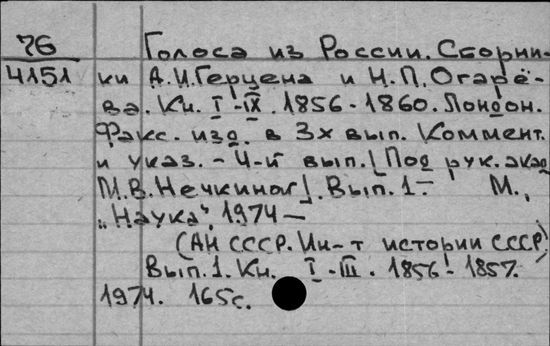 76 Голоса из России. Сборни-
4151 ки А.И.Герцена и Н.П.Огарё-
ва. Кн. I-IX. 1856-1860. Лондон.
Факс. изд. в 3х вып. Коммент.
и указ. - 4-й вып. [Под рук. акад
М.В.Нечкиной]. Вып. 1- М.,
"Наука", 1974 —
(АН СССР. Ин-т истории СССР)
Вып. 1. Кн. I-III. 1856-1857.
1974. 165с.